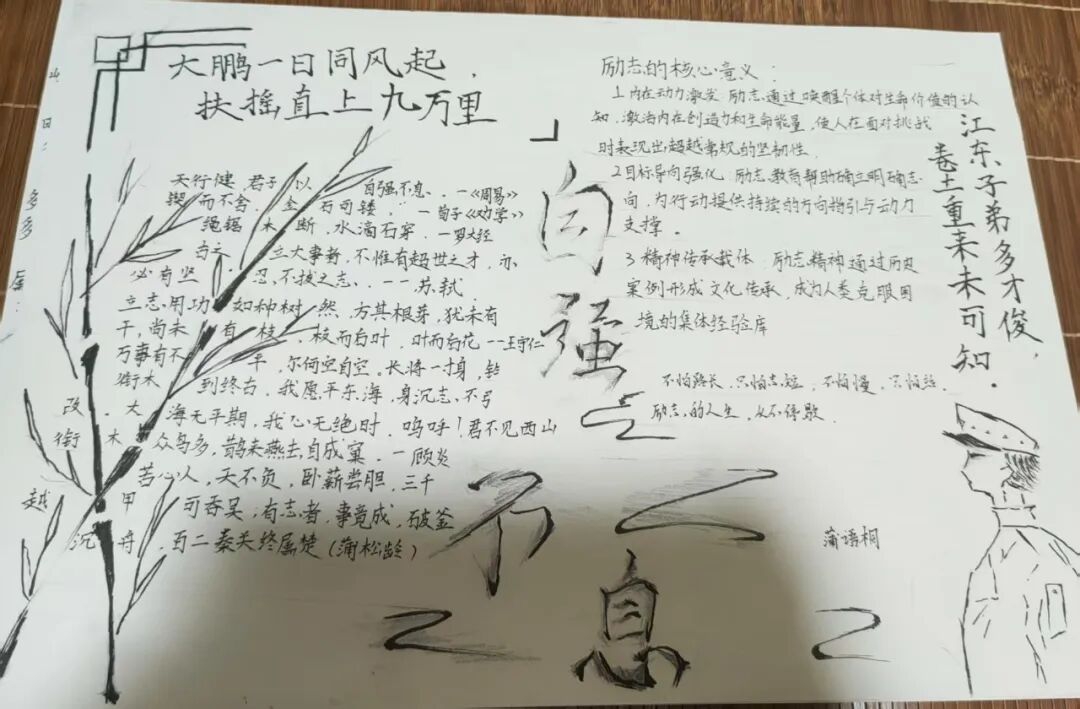 大鹏一日同风起,
扶摇直上九万里
天行健,君子以自强不息。——《周易》
锲而不舍,金石可镂。——荀子《劝学》
绳锯木断,水滴石穿。——罗大经
立大事者,不惟有超世之才,亦
必有坚忍不拔之志。——苏轼
立志用功如种树然,方其根芽,犹未有
干,尚未有枝,枝而白叶,叶而白花——王守仁
万事有不平,尔何空自空,长将一寸身,
衔木到终古,我愿平东海,身沉志不
改,大海无平期,我心无绝时,呜呼!君不见西山
衔木众鸟多,鹊来燕去自成窠。——顾炎
苦心人,天不负,卧薪尝胆,三千
越甲可吞吴;有志者,事竟成,破釜
沉舟,百二秦关终属楚(蒲松龄)
自强
不息
励志的核心意义:
1.内在动力激发 励志通过唤醒个体对生命价值的认
知,激活内在创造力和生命能量,使人在面对挑战
时表现出超越常规的坚韧性。
2.目标导向强化 励志教育帮助确立明确志
向,为行动提供持续的方向指引与动力
支撑。
3.精神传承载体 励志精神通过历史
案例形成文化传承,成为人类克服困
境的集体经验库
不怕路长,只怕志短,不怕慢,只怕站
励志的人生,从不停歇
江东子弟多才俊,
卷土重来未可知.
蒲语桐